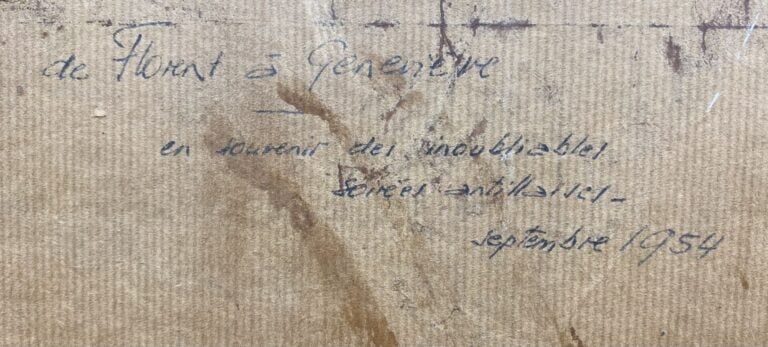 de Florent à Geneviève
en souvenir des inoubliables
soirées antillaises -
septembre 1954